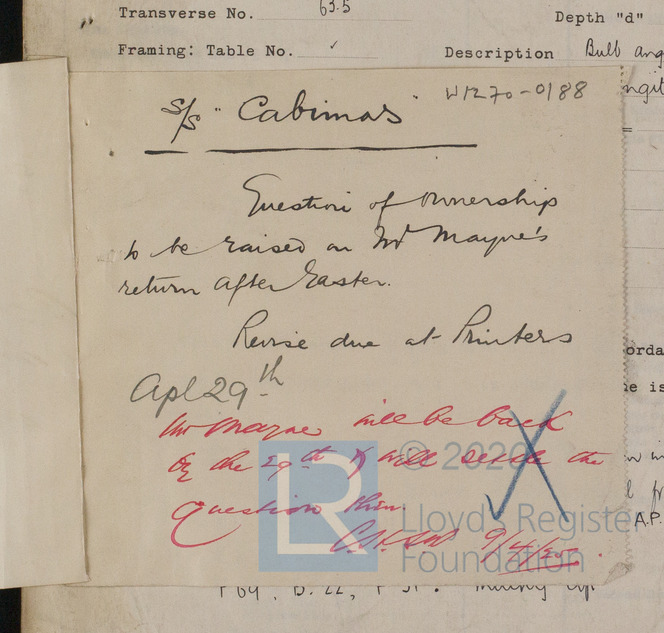 Transverse No. 63.5
Depth "d"
Framing: Table No. ✓
Description Bulb ang
W1270-0188
S/S "Cabimas"
Question of ownership
to be raised on Mr Mayne's
return after Easter.
Revise due at Printers
Apl 29th
Mr Mayne will be back
by the 29th & will settle the
question then.
9/4/25.
© 2020
LR
Lloyd's Register
Foundation
A.P.